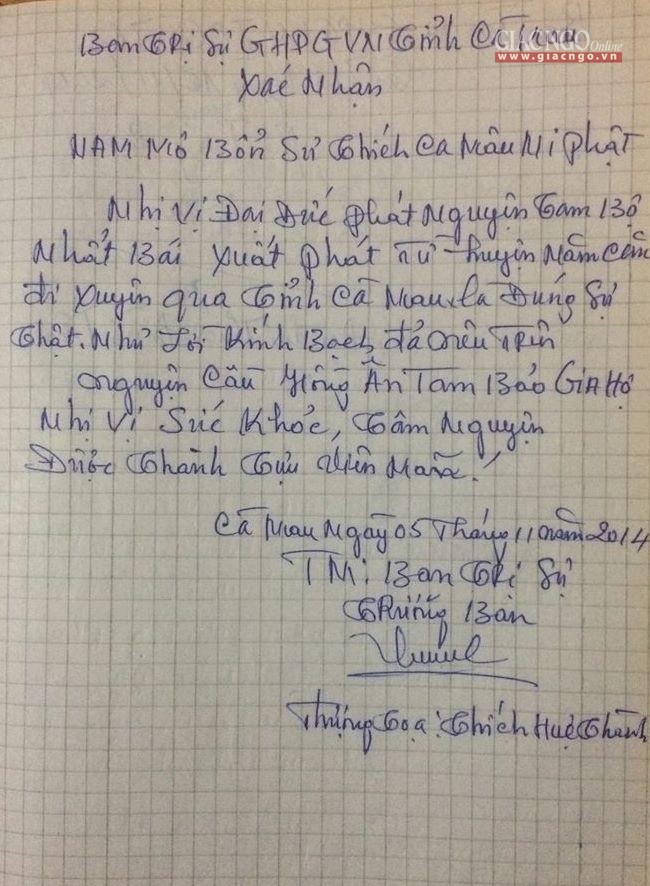 Ban Trị Sự GHPGVN Tỉnh Cà Mau
GIACNGO Online
www.giacngo.vn
Xác Nhận
NAM MÔ Bổn Sư Thích Ca Mâu Ni Phật
Nhị Vị Đại Đức Phát Nguyện Tam Bộ
Nhất Bái Xuất Phát từ huyện Năm Căn
đi xuyên qua Tỉnh Cà Mau, là Đúng Sự
Thật. Như Lời Kính Bạch đã nêu trên
Nguyện Cầu Hồng Ân Tam Bảo Gia Hộ
Nhị Vị Sức Khỏe, Tâm Nguyện
Được Thành Tựu Viên Mãn!
Cà Mau Ngày 05 Tháng 11 năm 2014
TM: Ban Trị Sự
Trưởng Ban
Thượng Tọa: Thích Huệ Thành